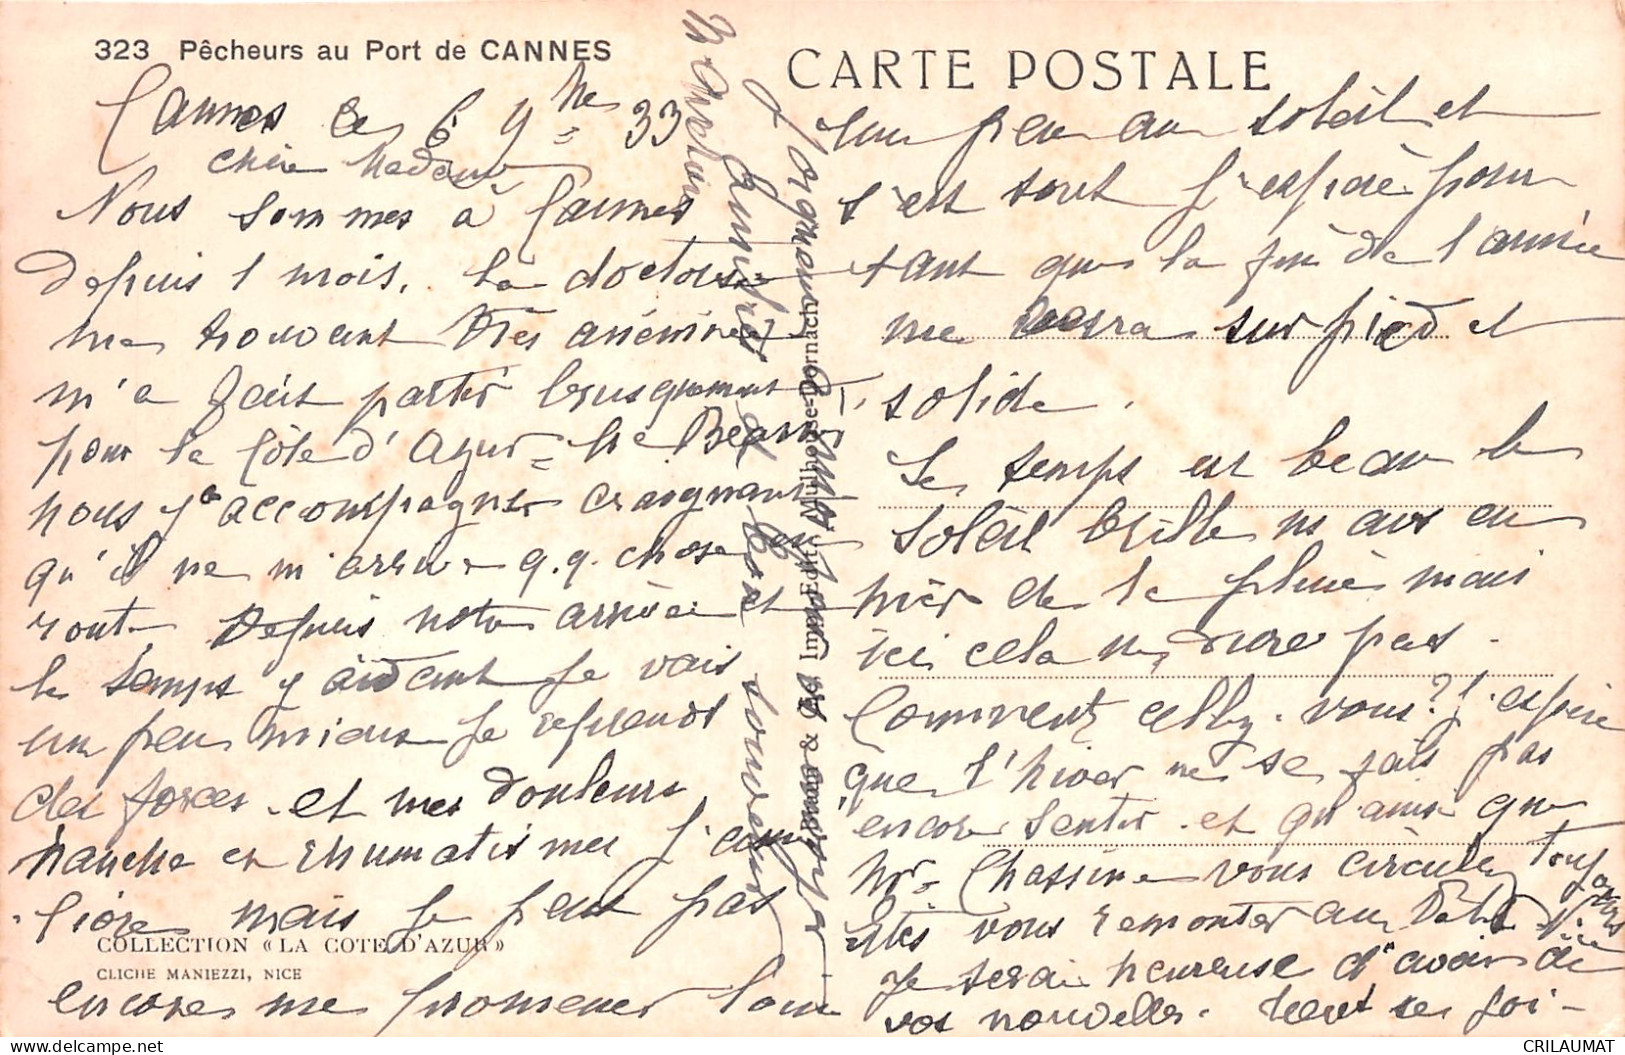 323 Pêcheurs au Port de CANNES
CARTE POSTALE
Cannes le 6 9bre 33
Chère Madame
Nous sommes à Cannes
depuis 1 mois. Le docteur
me trouvant très anémiée
m'a fait partir brusquement
pour la Côte d'Azur = Mr Beam
nous y a accompagnés craignant
qu'il ne m'arrive q.q. chose en
route Depuis notre arrivée et
le temps y aidant je vais
un peu mieux je reprends
des forces. et mes douleurs
hanche et rhumatismes s'amé
liore mais je peux pas
encore me promener loin
un peu au soleil et
c'est tout j'espère pour
tant que la fin de l'année
me verra sur pied et
solide.
Le temps est beau le
soleil brille nous avons eu
hier de la pluie mais
ici cela ne dure pas.
Comment allez-vous? J'espère
que l'hiver ne se fait pas
encore sentir. et qu'ainsi que
Mr. Chassine vous circulez toujours
Etes vous remonter au
Je serai heureuse d'avoir de
vos nouvelles. se joi-
Amitiés et bon souvenir
Braun & Cie Imp.-Edit., Mulhouse-Dornach
COLLECTION « LA COTE D'AZUR »
CLICHE MANIEZZI, NICE
delcampe.net
CRILAUMAT